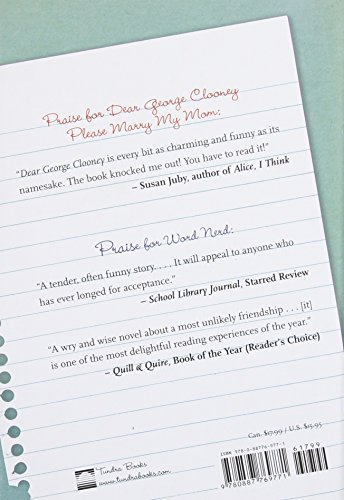 Praise for Dear George Clooney
Please Marry My Mom:
"Dear George Clooney is every bit as charming and funny as its
namesake. The book knocked me out! You have to read it!"
– Susan Juby, author of Alice, I Think
Praise for Word Nerd:
"A tender, often funny story. . . . It will appeal to anyone who
has ever longed for acceptance."
– School Library Journal, Starred Review
"A wry and wise novel about a most unlikely friendship . . . [it]
is one of the most delightful reading experiences of the year."
– Quill & Quire, Book of the Year (Reader's Choice)
Can. $17.99 / U.S. $15.95
ISBN 978-0-88776-977-1
61799
9 780887 769771
Tundra Books
www.tundrabooks.com